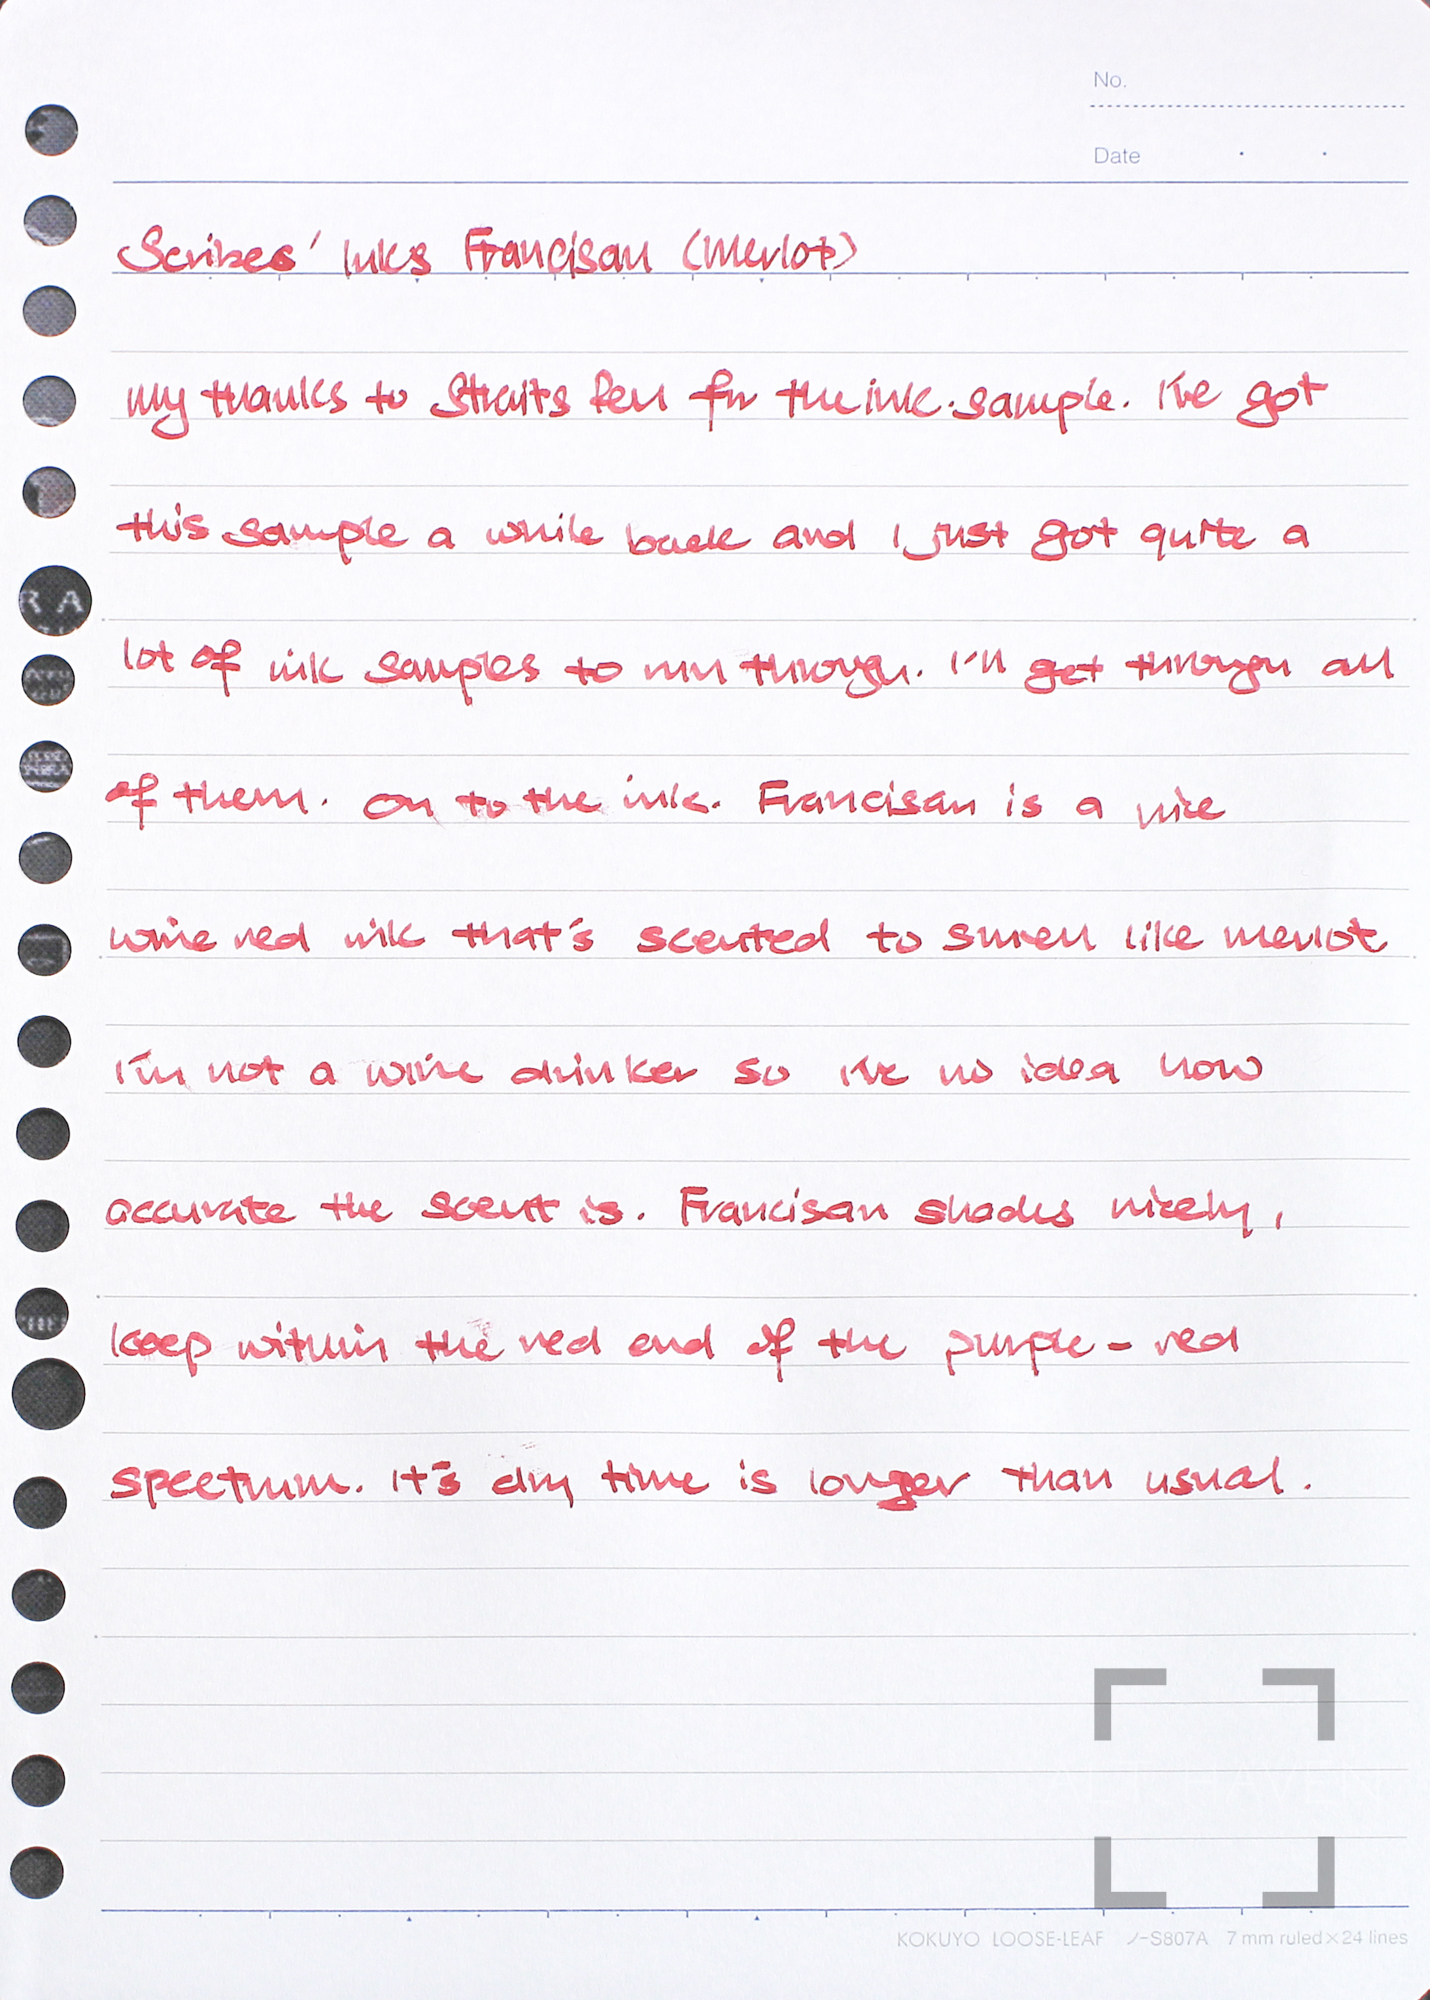 No.
Date
Scribes' Inks Francisan (Merlot)
My thanks to Straits Pen for the ink sample. I've got
this sample a while back and I just got quite a
lot of ink samples to run through. I'll get through all
of them. On to the ink. Francisan is a nice
wine red ink that's scented to smell like merlot
I'm not a wine drinker so I've no idea how
accurate the scent is. Francisan shades nicely,
keep within the red end of the purple-red
spectrum. It's dry time is longer than usual.
KOKUYO LOOSE-LEAF ノ-S807A 7 mm ruled×24 lines